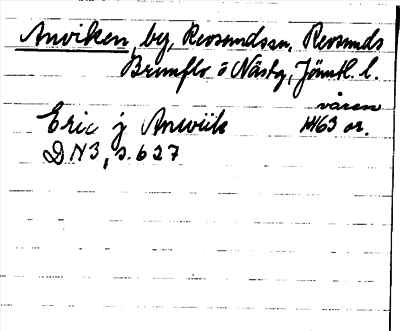 Anviken, by, Revsundssn, Revsunds
Brunflo o Näsby, Jämtl. l.
våren
Eric j Anwiik 1463 or.
DN3, s. 627